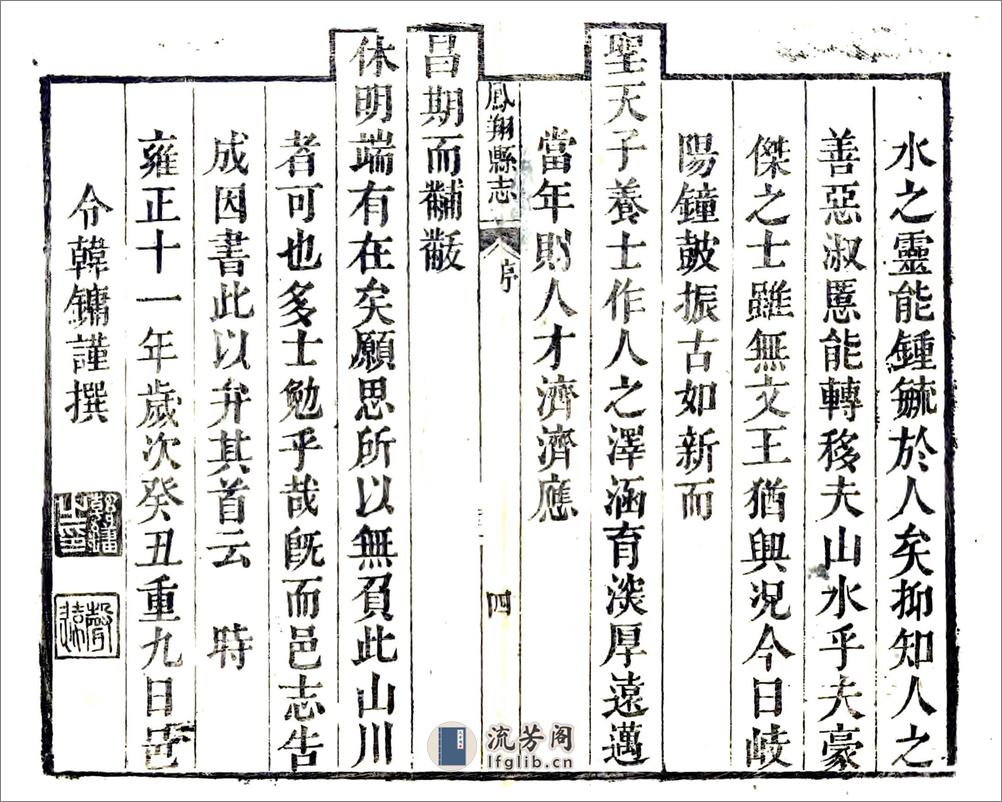 水之靈能鍾毓於人矣抑知人之
善惡淑慝能轉移夫山水乎夫豪
傑之士雖無文王猶興況今日岐
陽鐘鼓振古如新而
聖天子養士作人之澤涵育深厚遠邁
當年則人才濟濟應
鳳翔縣志
序
四
昌期而黼黻
休明端有在矣願思所以無負此山川
者可也多士勉乎哉既而邑志告
成因書此以弁其首云 時
雍正十一年歲次癸丑重九日邑
令韓鏞謹撰
韓鏞之印
聲遠
流芳阁
lfglib.cn